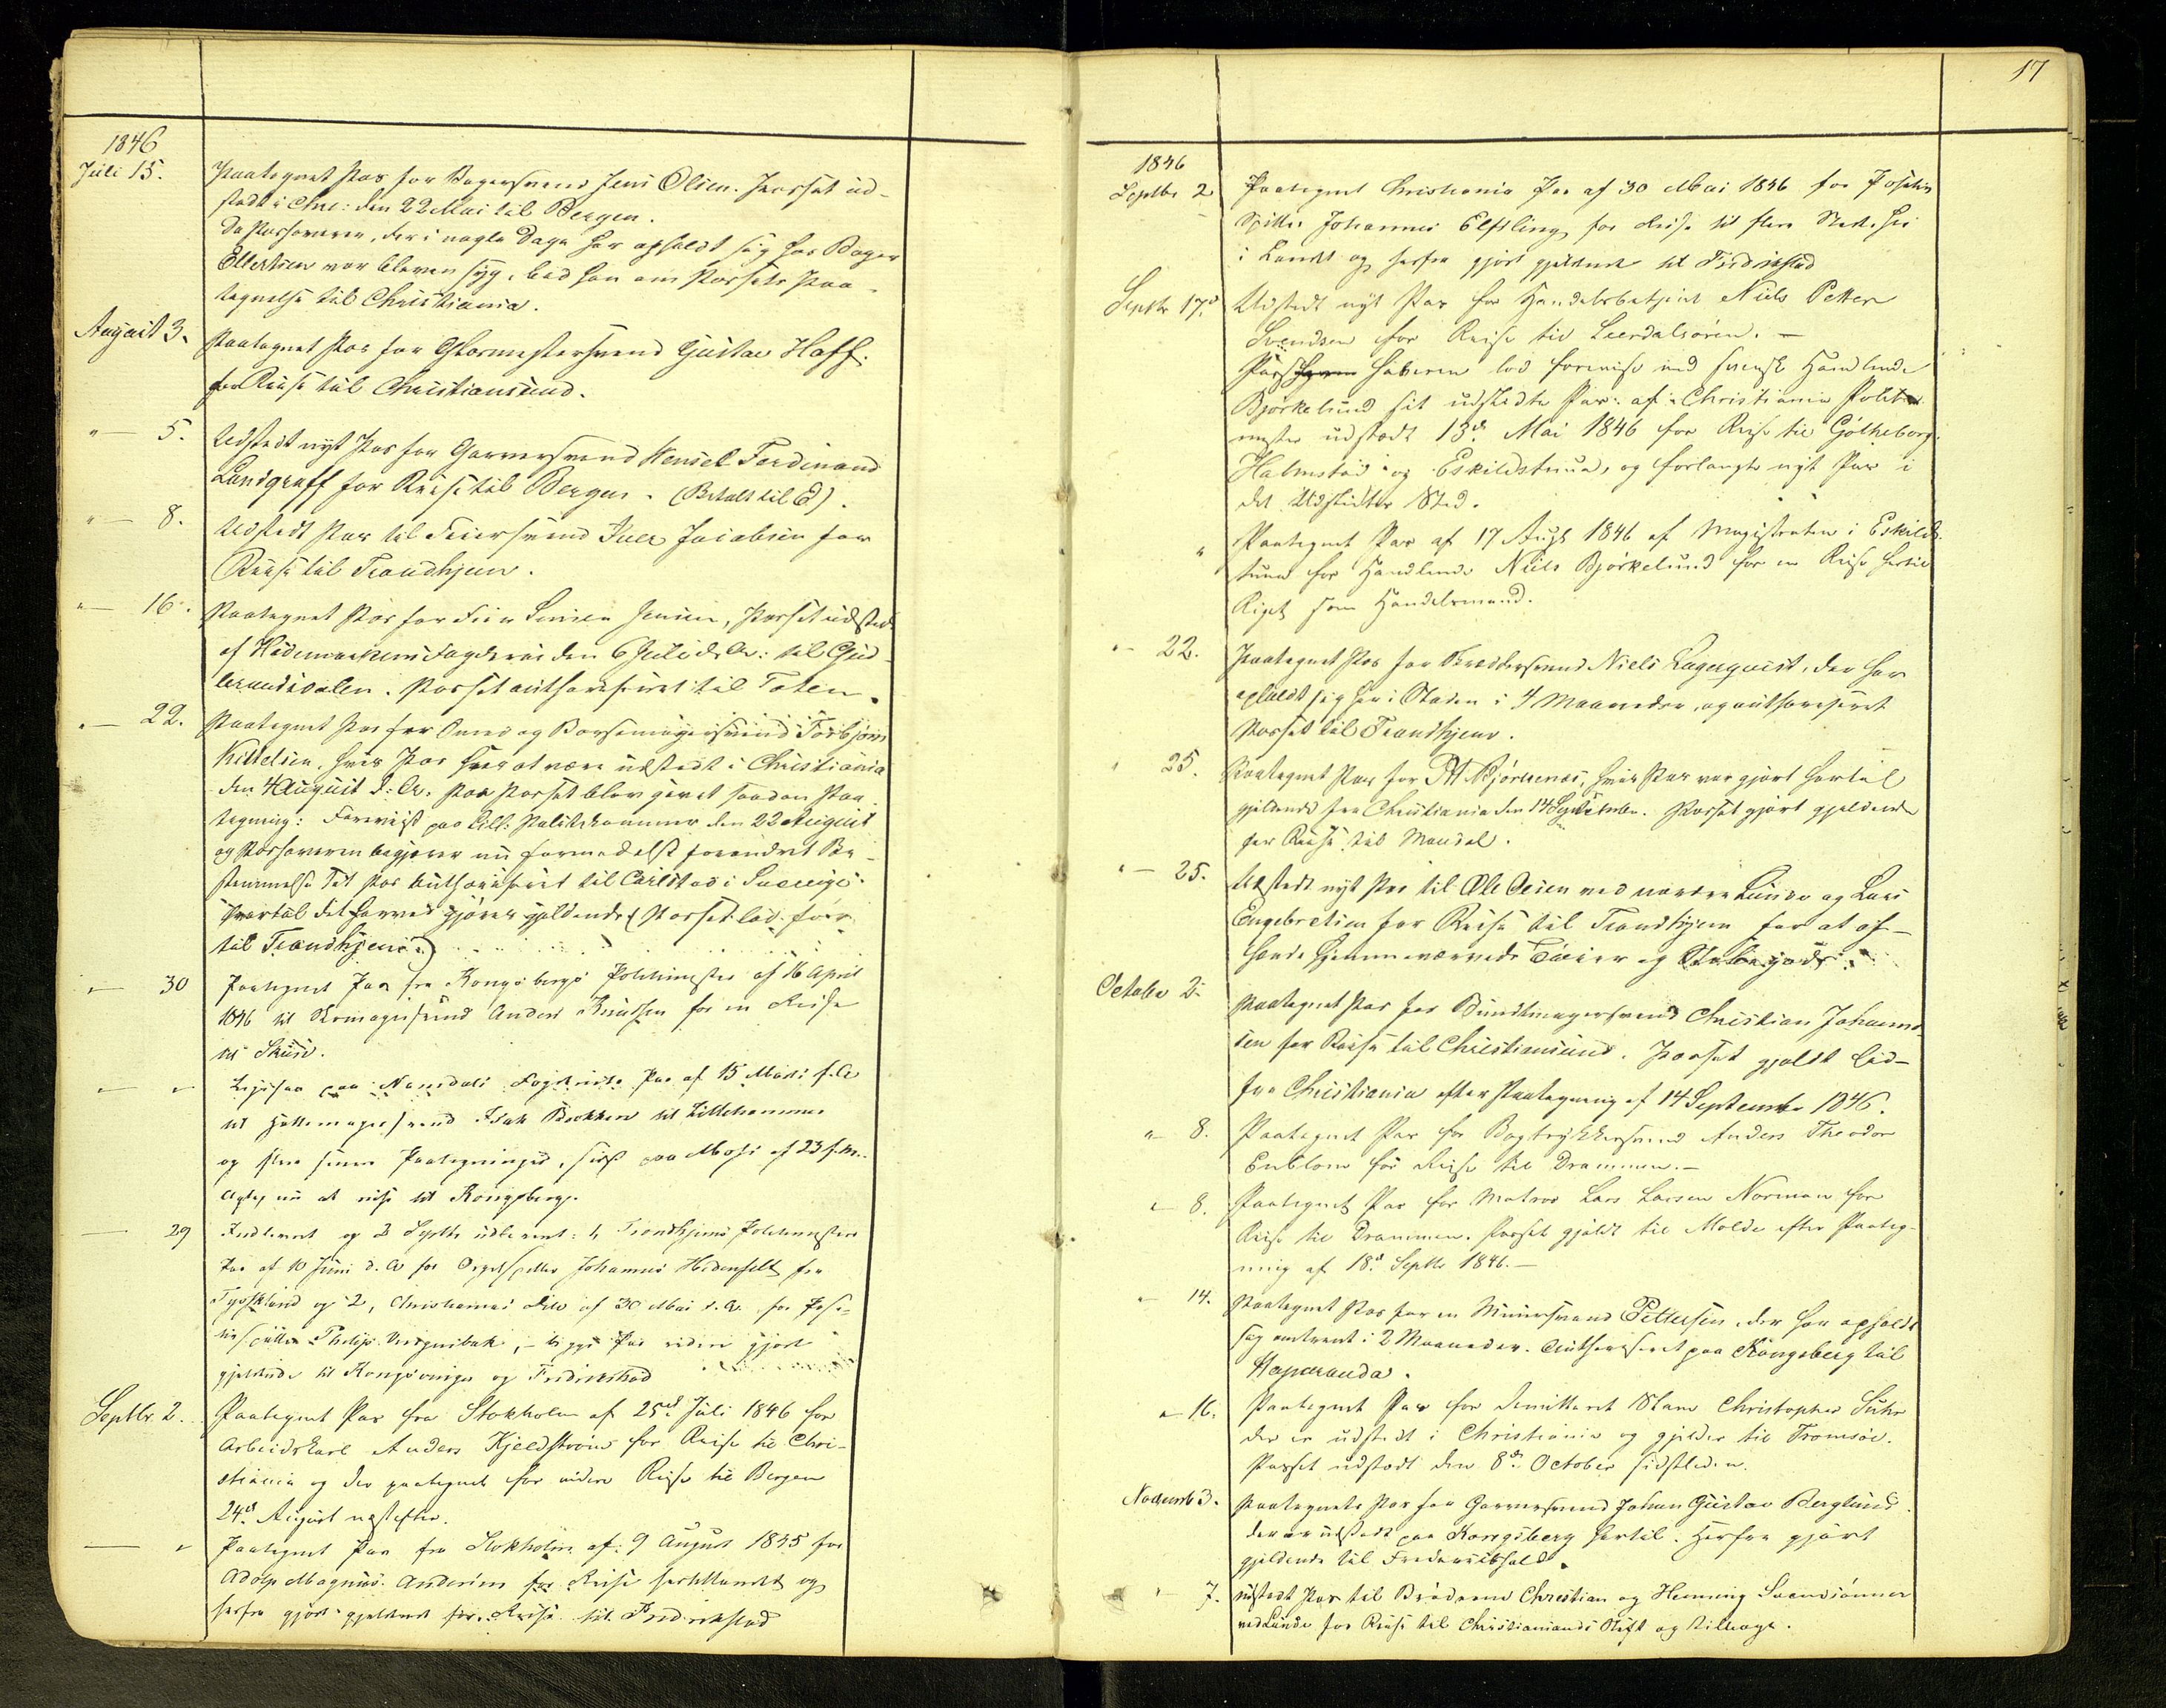 1846
Juli 15.
Paategnet Pas for Bagersvend Jens Olsen. Passet ud-
stædt i Chra: den 22 Mai til Bergen.
Da Pashaveren, der i nogle Dage har opholdt sig hos Bager
Ellertsen var bleven syg, bad han om Passets Paa-
tegnelse til Christiania.
August 3.
Paategnet Pas for Glasmestersvend Gustav Hoff
for Reise til Christiansund.
"— 5.
Udstædt nyt Pas for Garversvend Wensel Ferdinand
Landgraff for Reise til Bergen. (Betalt til E).
"— 8.
Udstædt Pas til Feiersvend Iver Jacobsen for
Reise til Trondhjem.
"— 16.
Paategnet Pas for Jensen, Passet udstædt
af Hedemarkens Fogderie den 6 Juli d. A: til Gud-
brandsdalen. Passet authoriseret til Toten.
"— 22.
Paategnet Pas for og Børsemagersvend Torbjørn
Kittelsen, hvis Pas at være udstædt i Christiania
den 4 August d: A. Paa Passet blev givet saadan Paa-
tegning: Foreviist paa Lill: Politikammer den 22 August
og Pashaveren begjærer nu formedelst forandret Be-
stemmelse sit Pas authoriseret til Carlstad i Sverrige
hvortil det herved gjøres gjeldende (Passet lød før
til Trondhjem.)
"— 30
Paategnet Pas fra Kongsbergs Politimester af 16 April
1846 til Skomagersvend Anders Knudsen for en Reise
til Skien.
"— "
paa Namdals Fogderies Pas af 15 Marts f. A
til Hattemagersvend Isak Bakken til Lillehammer
og flere senere Paategninger, sidst paa Moss af 23 f. M.
Agter nu at reise til Kongsberg.
— 29
Indleveret og 2 Septbr udleveret: 1, Trondhjems Politimesters
Pas af 10 Juni d. A for Orgelspiller Johannes Hedenfeldt fra
Tydskland og 2, Christianias dito af 30 Mai d. A. for Posi-
tivspiller Philip , begge Pas videre gjort
gjeldende til Kongsvinger og Fredrikstad
Septbr. 2.
Paategnet Pas fra Stokholm af 25de Juli 1846 for
Arbeidskarl Anders Kjeldstrøm for Reise til Chri-
stiania og der paategnet for videre Reise til Bergen
24de August næstefter.
— "
Paategnet Pas fra Stokholm af 9 August 1845 for
Adolp Magnus Anderson for Reise hertillandet og
herfra gjort gjeldende for Reise til Fredrikstad
17
1846
Septbr 2
Paategnet Christiania Pas af 30 Mai 1846 for Positiv
Spiller Johannes Elfling for Reise til flere Steder her
i Landet og herfra gjort gjeldende til Fredrikstad
Septbr 17de
Udstedt nyt Pas for Handelsbetjent Niels Petter
Svendsen for Reise til Leerdalsøren. —
Pashaveren lod forevise ved svensk Handlende
Björkelund sit udstedte Pas: af Christiania Politie
mester udstedt 13de Mai 1846 for Reise til Götheborg,
Halmstad og Eskildstuna, og forlangte nyt Pas i
det Udstedtes Sted.
"
Paategnet Pas af 17 Augt 1846 af Magistraten i Eskilds
tuna for Handlende Niels Björkelund for en Reise hertil
Riget som Handelsmand.
"— 22.
Paategnet Pas for Skreddersvend Niels Lagerquist, der har
opholdt sig her i Staden i 4 Maaneder, og authoriseret
Passet til Trondhjem.
" 25.
Paategnet Pas for P. A. Björnenæs, hvis Pas var gjort hertil
gjeldende fra Christiania den 14 September. Passet gjort gjeldende
for Reise til Mandal.
"— 25.
Udstedt nyt Pas til Ole Olsen ved nordre Lunde og Lars
Engebretsen for Reise til Trondhjem for at af-
hænde hjemmeværende og
October 2.
Paategnet Pas for Bundtmagersvend Christian Johann-
sen for Reise til Christiansund. Passet gjaldt hid-
fra Christiania efter Paategning af 14 September 1846.
"— 8.
Paategnet Pas for Bogtrykkersvend Anders Theodor
Enblom for Reise til Drammen. —
"— 8.
Paategnet Pas for Matros Lars Larsen Norman for
Reise til Drammen. Passet gjaldt til Molde efter Paateg-
ning af 18de Septbr 1846. —
"— 14.
Paategnet Pas for en Muursvend Pettersen, der har opholdt
sig omtrent i 2 Maaneder. Authoriseret paa Kongsberg til
Haparanda.
"— 16.
Paategnet Pas for demitteret Slave Christopher Suhr
der er udstedt i Christiania og gjelder til Tromsöe.
Passet udstedt den 8de October sidstleden.
Novemb 3.
Paategnets Pas for Garversvend Johan Gustav Berglund
der er udstedt paa Kongsberg hertil. Herfra gjort
gjeldende til Frederikshald.
"— 7.
Udstedt Pas til Brødrene Christian og Henning Svendsönner
ved Lunde for Reise til Christiansands Stift og tilbage.